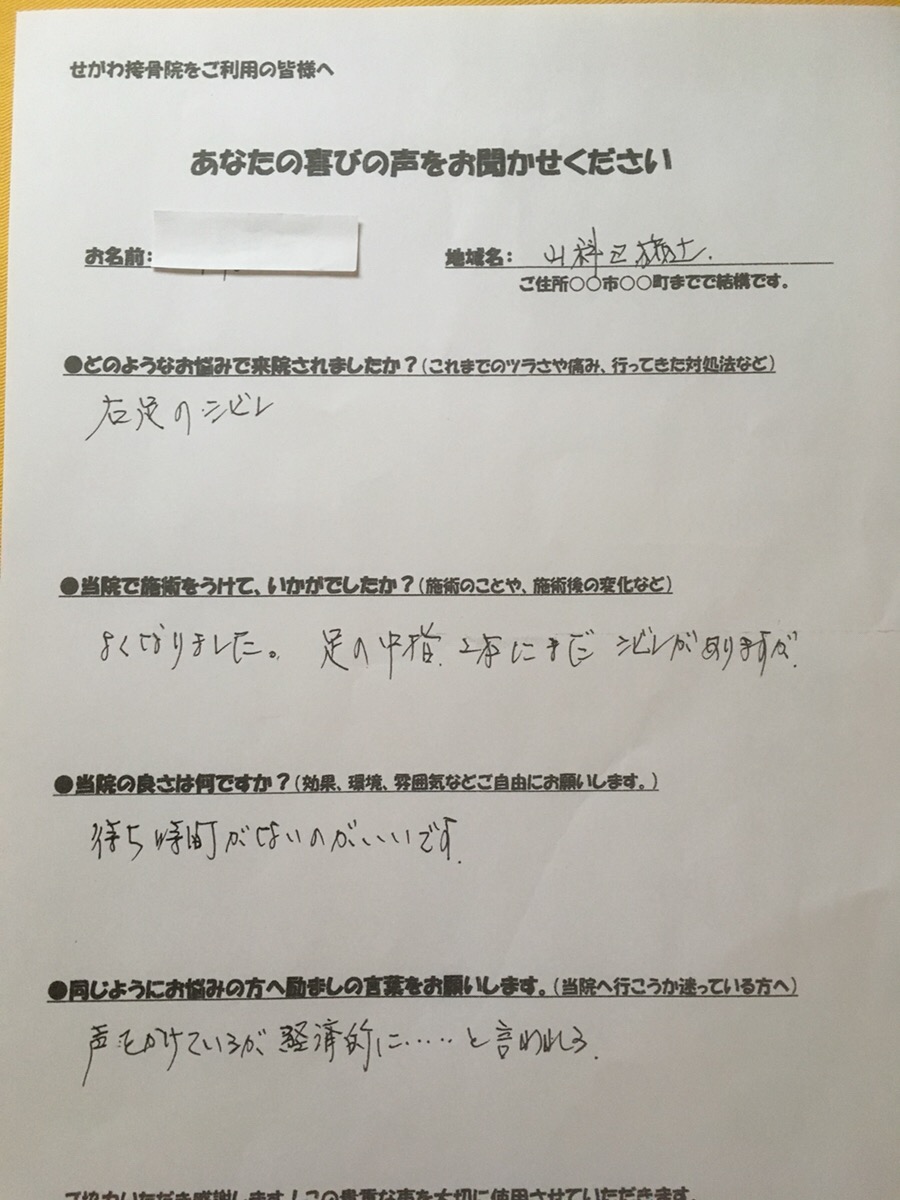 せがわ接骨院をご利用の皆様へ
あなたの喜びの声をお聞かせください
お名前：
地域名： 山科区
ご住所○○市○○町までで結構です。
●どのようなお悩みで来院されましたか？（これまでのツラさや痛み、行ってきた対処法など）
右足のシビレ
●当院で施術をうけて、いかがでしたか？（施術のことや、施術後の変化など）
よくなりました。 足の中指. 2本にまだ シビレがありますが.
●当院の良さは何ですか？（効果、環境、雰囲気などご自由にお願いします。）
待ち時間がないのがいいです.
●同じようにお悩みの方へ励ましの言葉をお願いします。（当院へ行こうか迷っている方へ）
声をかけているが、経済的に……と言われる.
ご協力いただき感謝します！この貴重な声を大切に使用させていただきます。